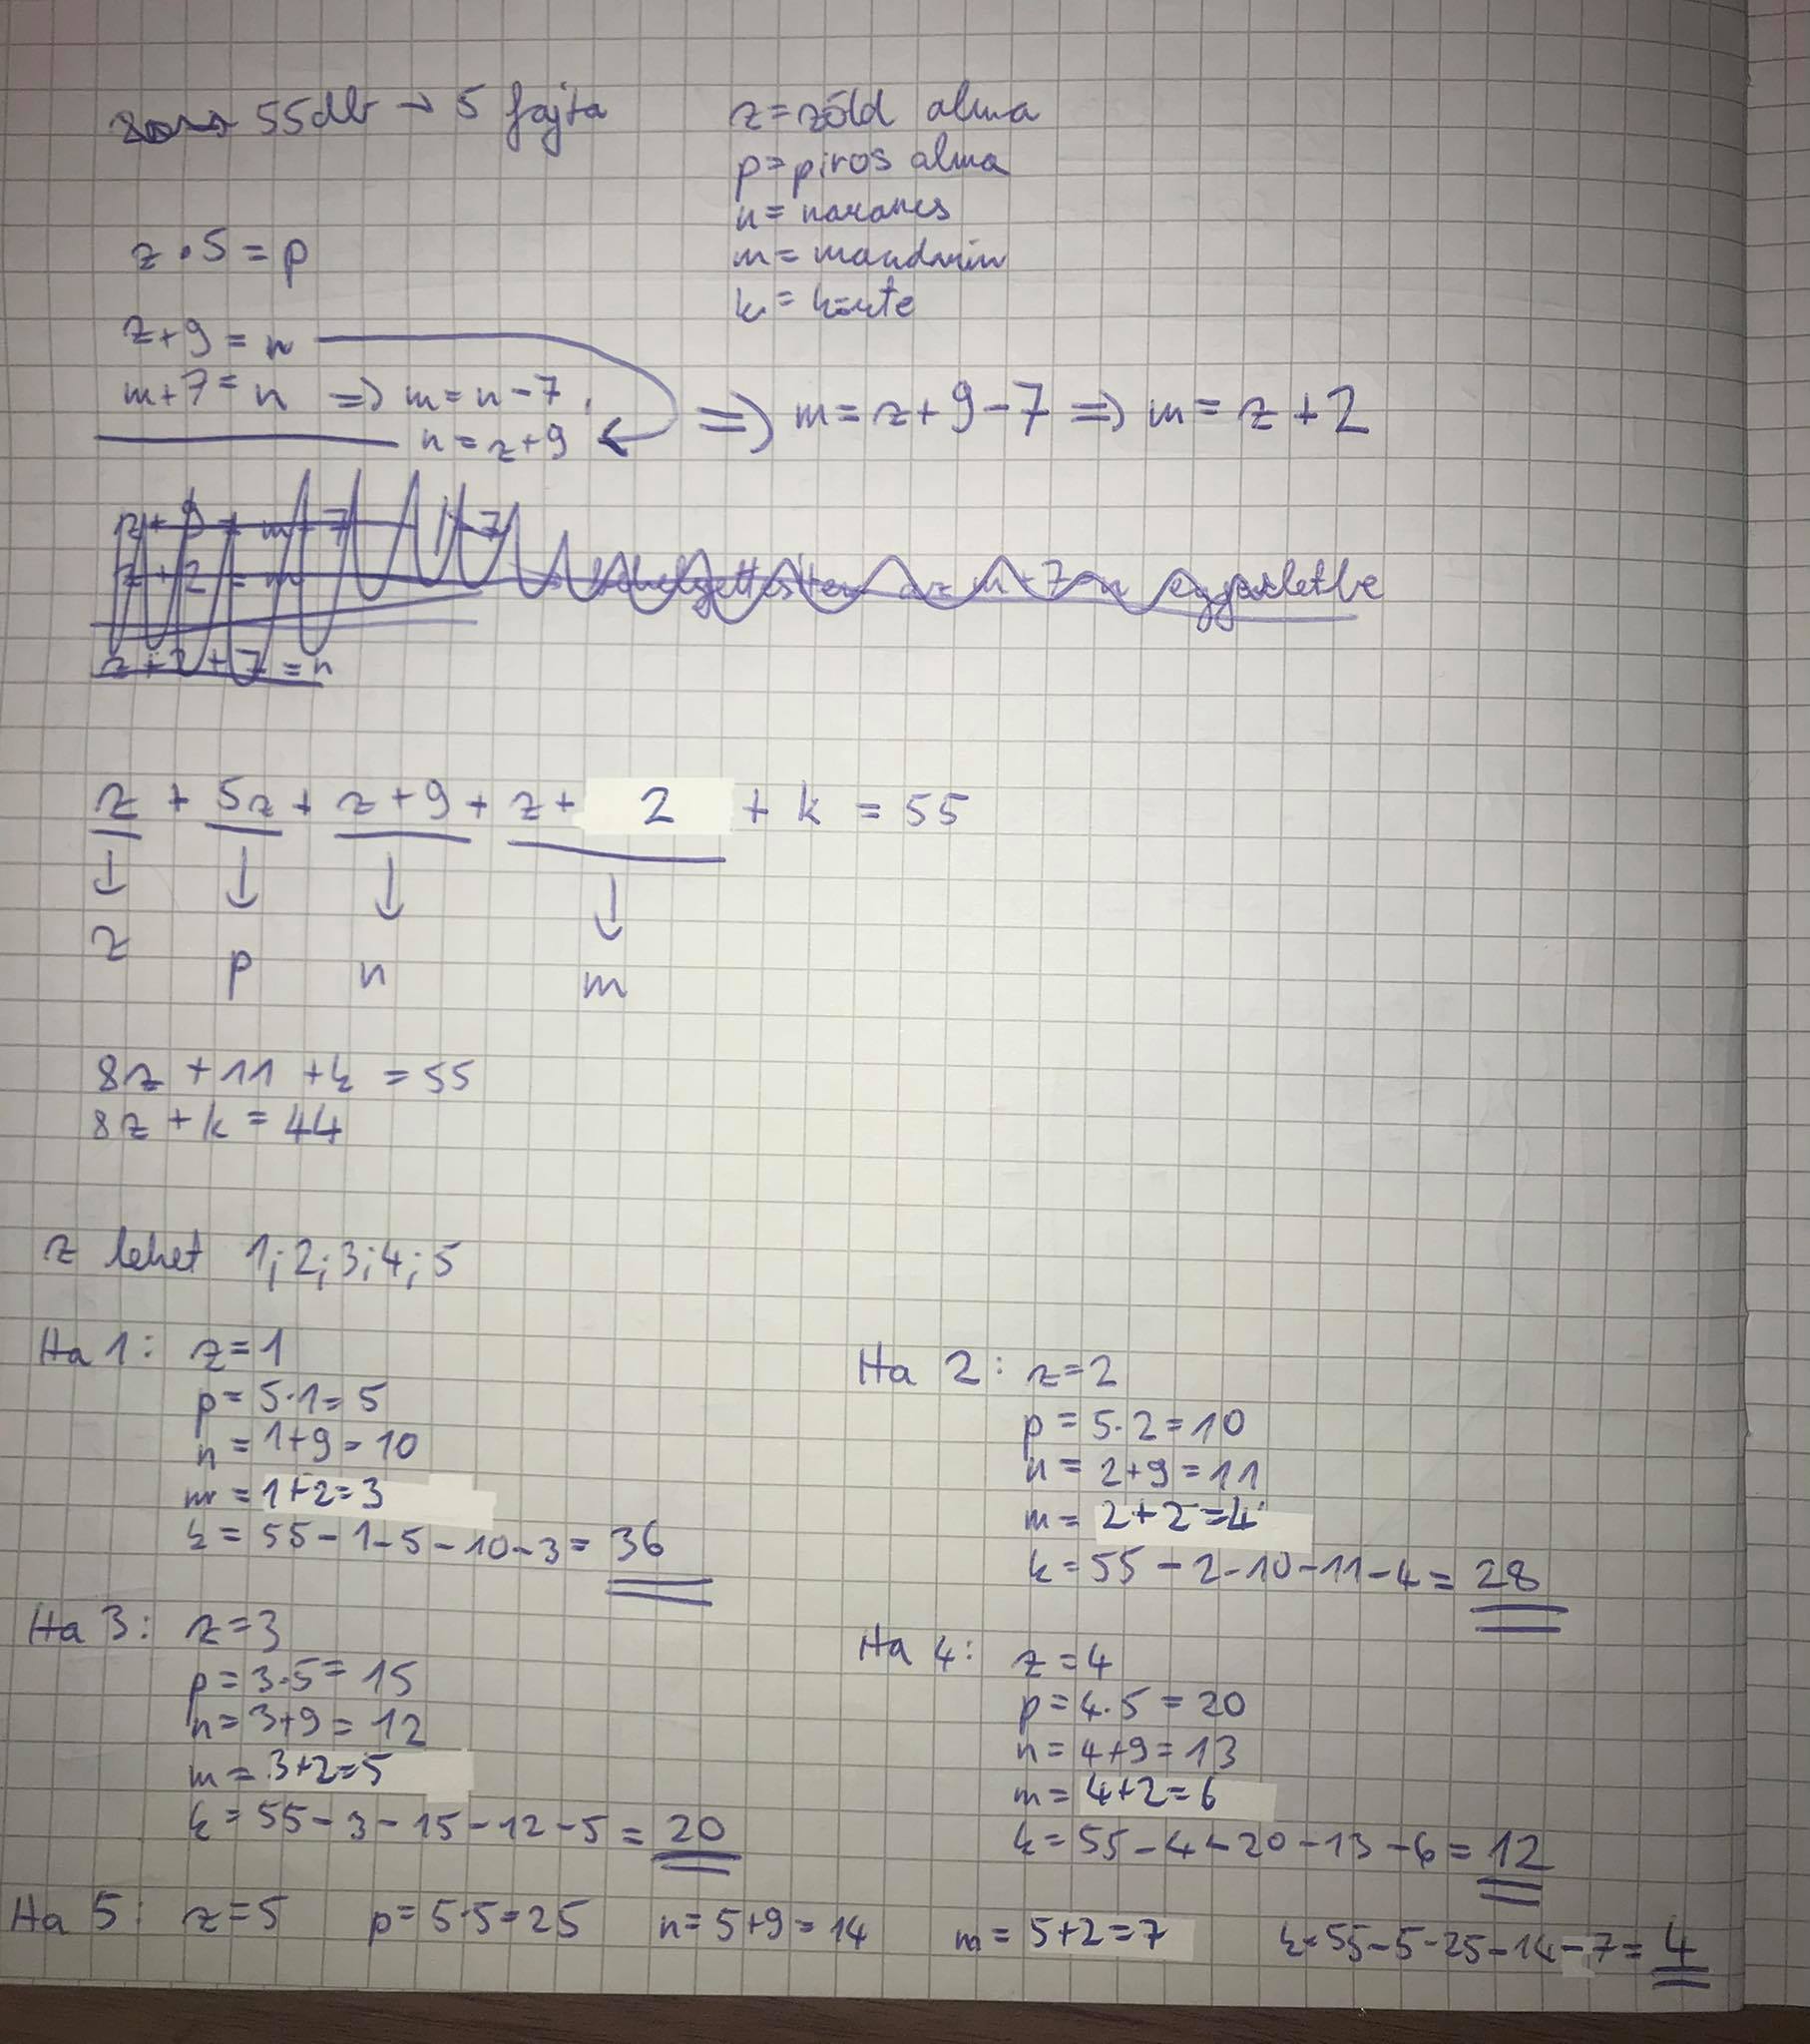 55db → 5 fajta
z = zöld alma
p = piros alma
n = narancs
m = mandarin
k = körte
z · 5 = p
z + 9 = n
m + 7 = n => m = n - 7
n = z + 9
=> m = z + 9 - 7 => m = z + 2
z + 5z + z + 9 + z + 2 + k = 55
↓ ↓ ↓ ↓
z p n m
8z + 11 + k = 55
8z + k = 44
z lehet 1; 2; 3; 4; 5
Ha 1: z = 1
p = 5·1 = 5
n = 1+9 = 10
m = 1+2=3
k = 55 - 1 - 5 - 10 - 3 = 36
Ha 2: z = 2
p = 5·2 = 10
n = 2+9 = 11
m = 2+2=4
k = 55 - 2 - 10 - 11 - 4 = 28
Ha 3: z = 3
p = 3·5 = 15
n = 3+9 = 12
m = 3+2=5
k = 55 - 3 - 15 - 12 - 5 = 20
Ha 4: z = 4
p = 4·5 = 20
n = 4+9 = 13
m = 4+2=6
k = 55 - 4 - 20 - 13 - 6 = 12
Ha 5: z = 5 p = 5·5 = 25 n = 5+9 = 14 m = 5+2=7 k = 55 - 5 - 25 - 14 - 7 = 4